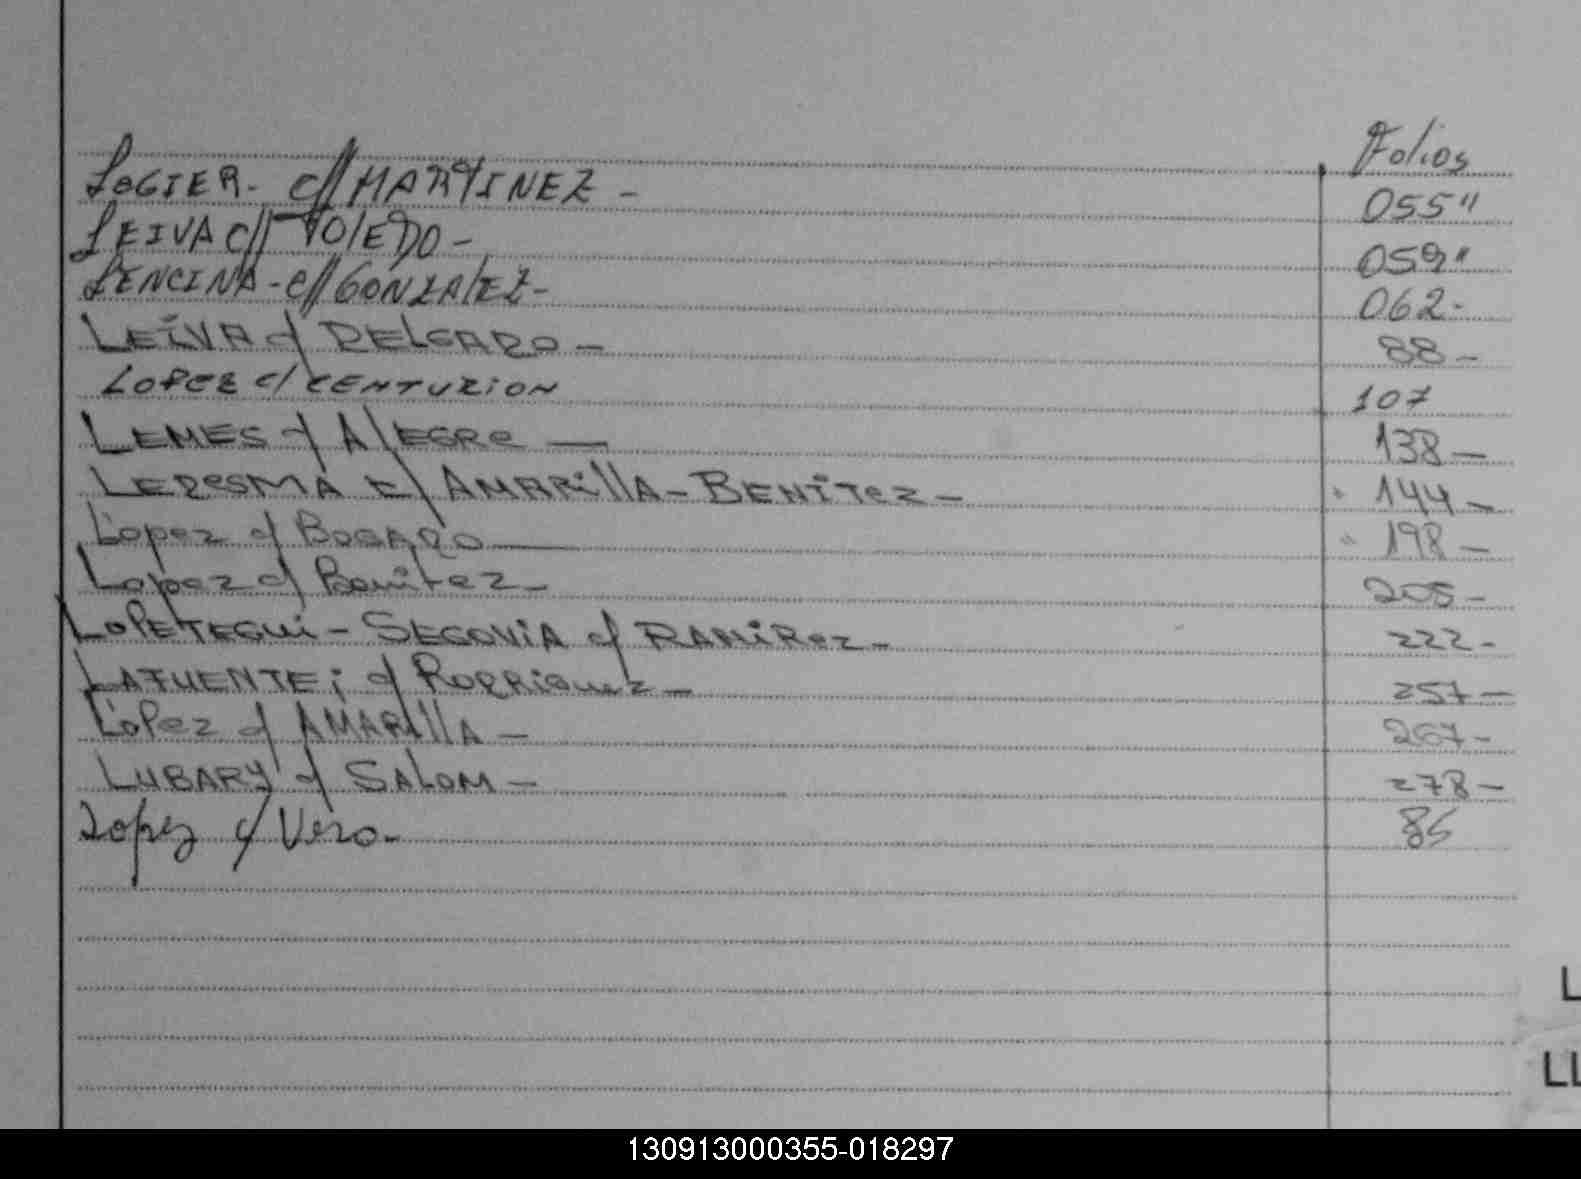 Folios
LOGIER - c// MARTINEZ - 055"
LEIVA c// TOLEDO - 059"
LENCINA - c// GONZALEZ - 062-
LEIVA c/ DELGADO - 88-
LOPEZ c/ CENTURION 107
LEMES c/ ALEGRE — 138-
LEDESMA c/ AMARILLA - BENITEZ - 144-
Lopez c/ BOGADO — 198-
Lopez c/ Benitez - 205-
LOPETEGUI - SEGOVIA c/ RAMIREZ - 222-
LAFUENTE; c/ RODRIGUEZ - 257-
LOPEZ c/ AMARILLA - 267-
LUBARY c/ SALOM - 278-
Lopez c/ Vero - 85
L
LL
130913000355-018297